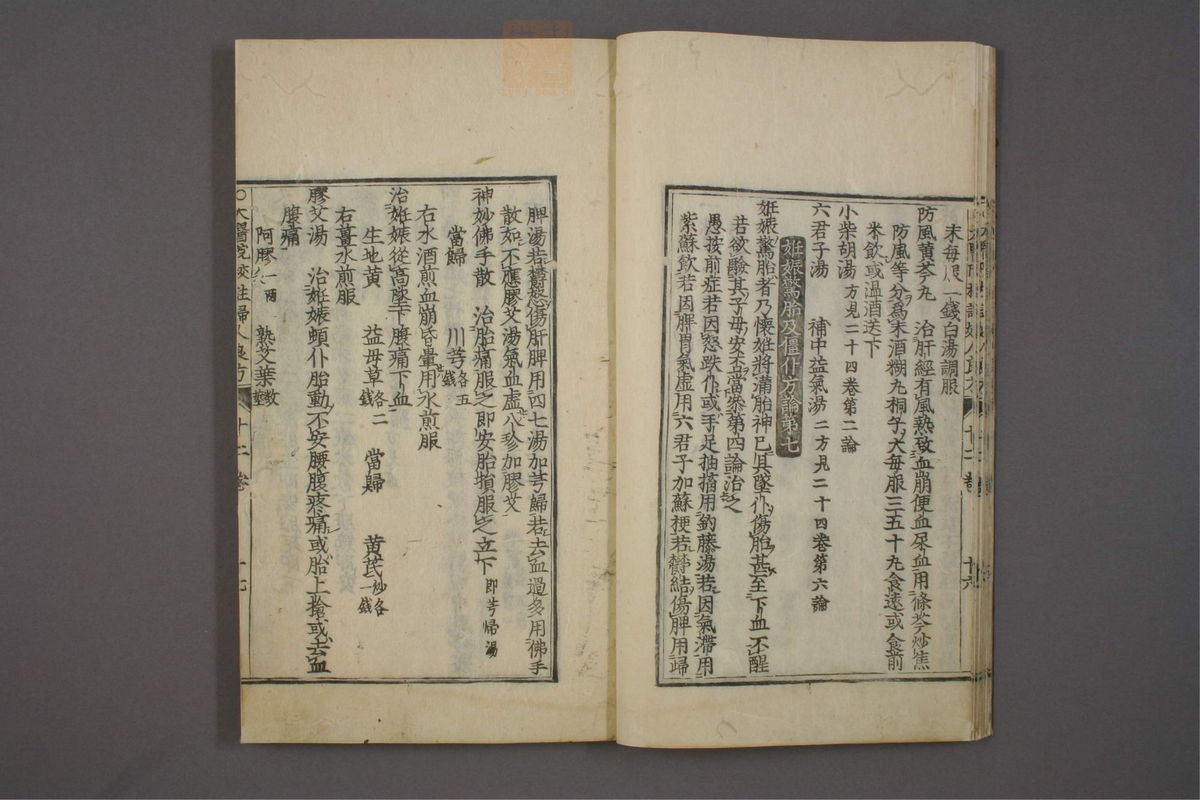 末每服一錢白湯調服
防風黃芩丸　治肝經有風熱致血崩便血尿血用條芩炒焦
防風等分爲末酒糊丸桐子大每服三五十丸食遠或食前
米飮或溫酒送下
小柴胡湯　方見二十四卷第二論
六君子湯　補中益氣湯　二方見二十四卷第六論
妊娠驚胎及僵仆方論第七
妊娠驚胎者乃懷妊將滿胎神已具墜仆傷胎甚至下血不醒
若欲驗其子母安否當叅第四論治之
愚按前症若因怒跌仆或手足抽搐用鈎藤湯若因氣滯用
紫蘇飮若因脾胃氣虛用六君子加蘇梗若鬱結傷脾用歸
脾湯若鬱怒傷肝脾用四七湯加芎歸若去血過多用佛手
散如不應膠艾湯氣血虛八珍加膠艾
神妙佛手散　治胎痛服之即安胎損服之立下　即芎歸湯
當歸　川芎各五錢
右水酒煎血崩昏暈用水煎服
治妊娠從高墜下腹痛下血
生地黃　益母草各二錢　當歸　黃芪炒各一錢
右薑水煎服
膠艾湯　治妊娠頓仆胎動不安腰腹疼痛或胎上搶或去血
腹痛
阿膠一兩　熟艾葉數莖
○太醫院校註婦人良方　十二卷　十七